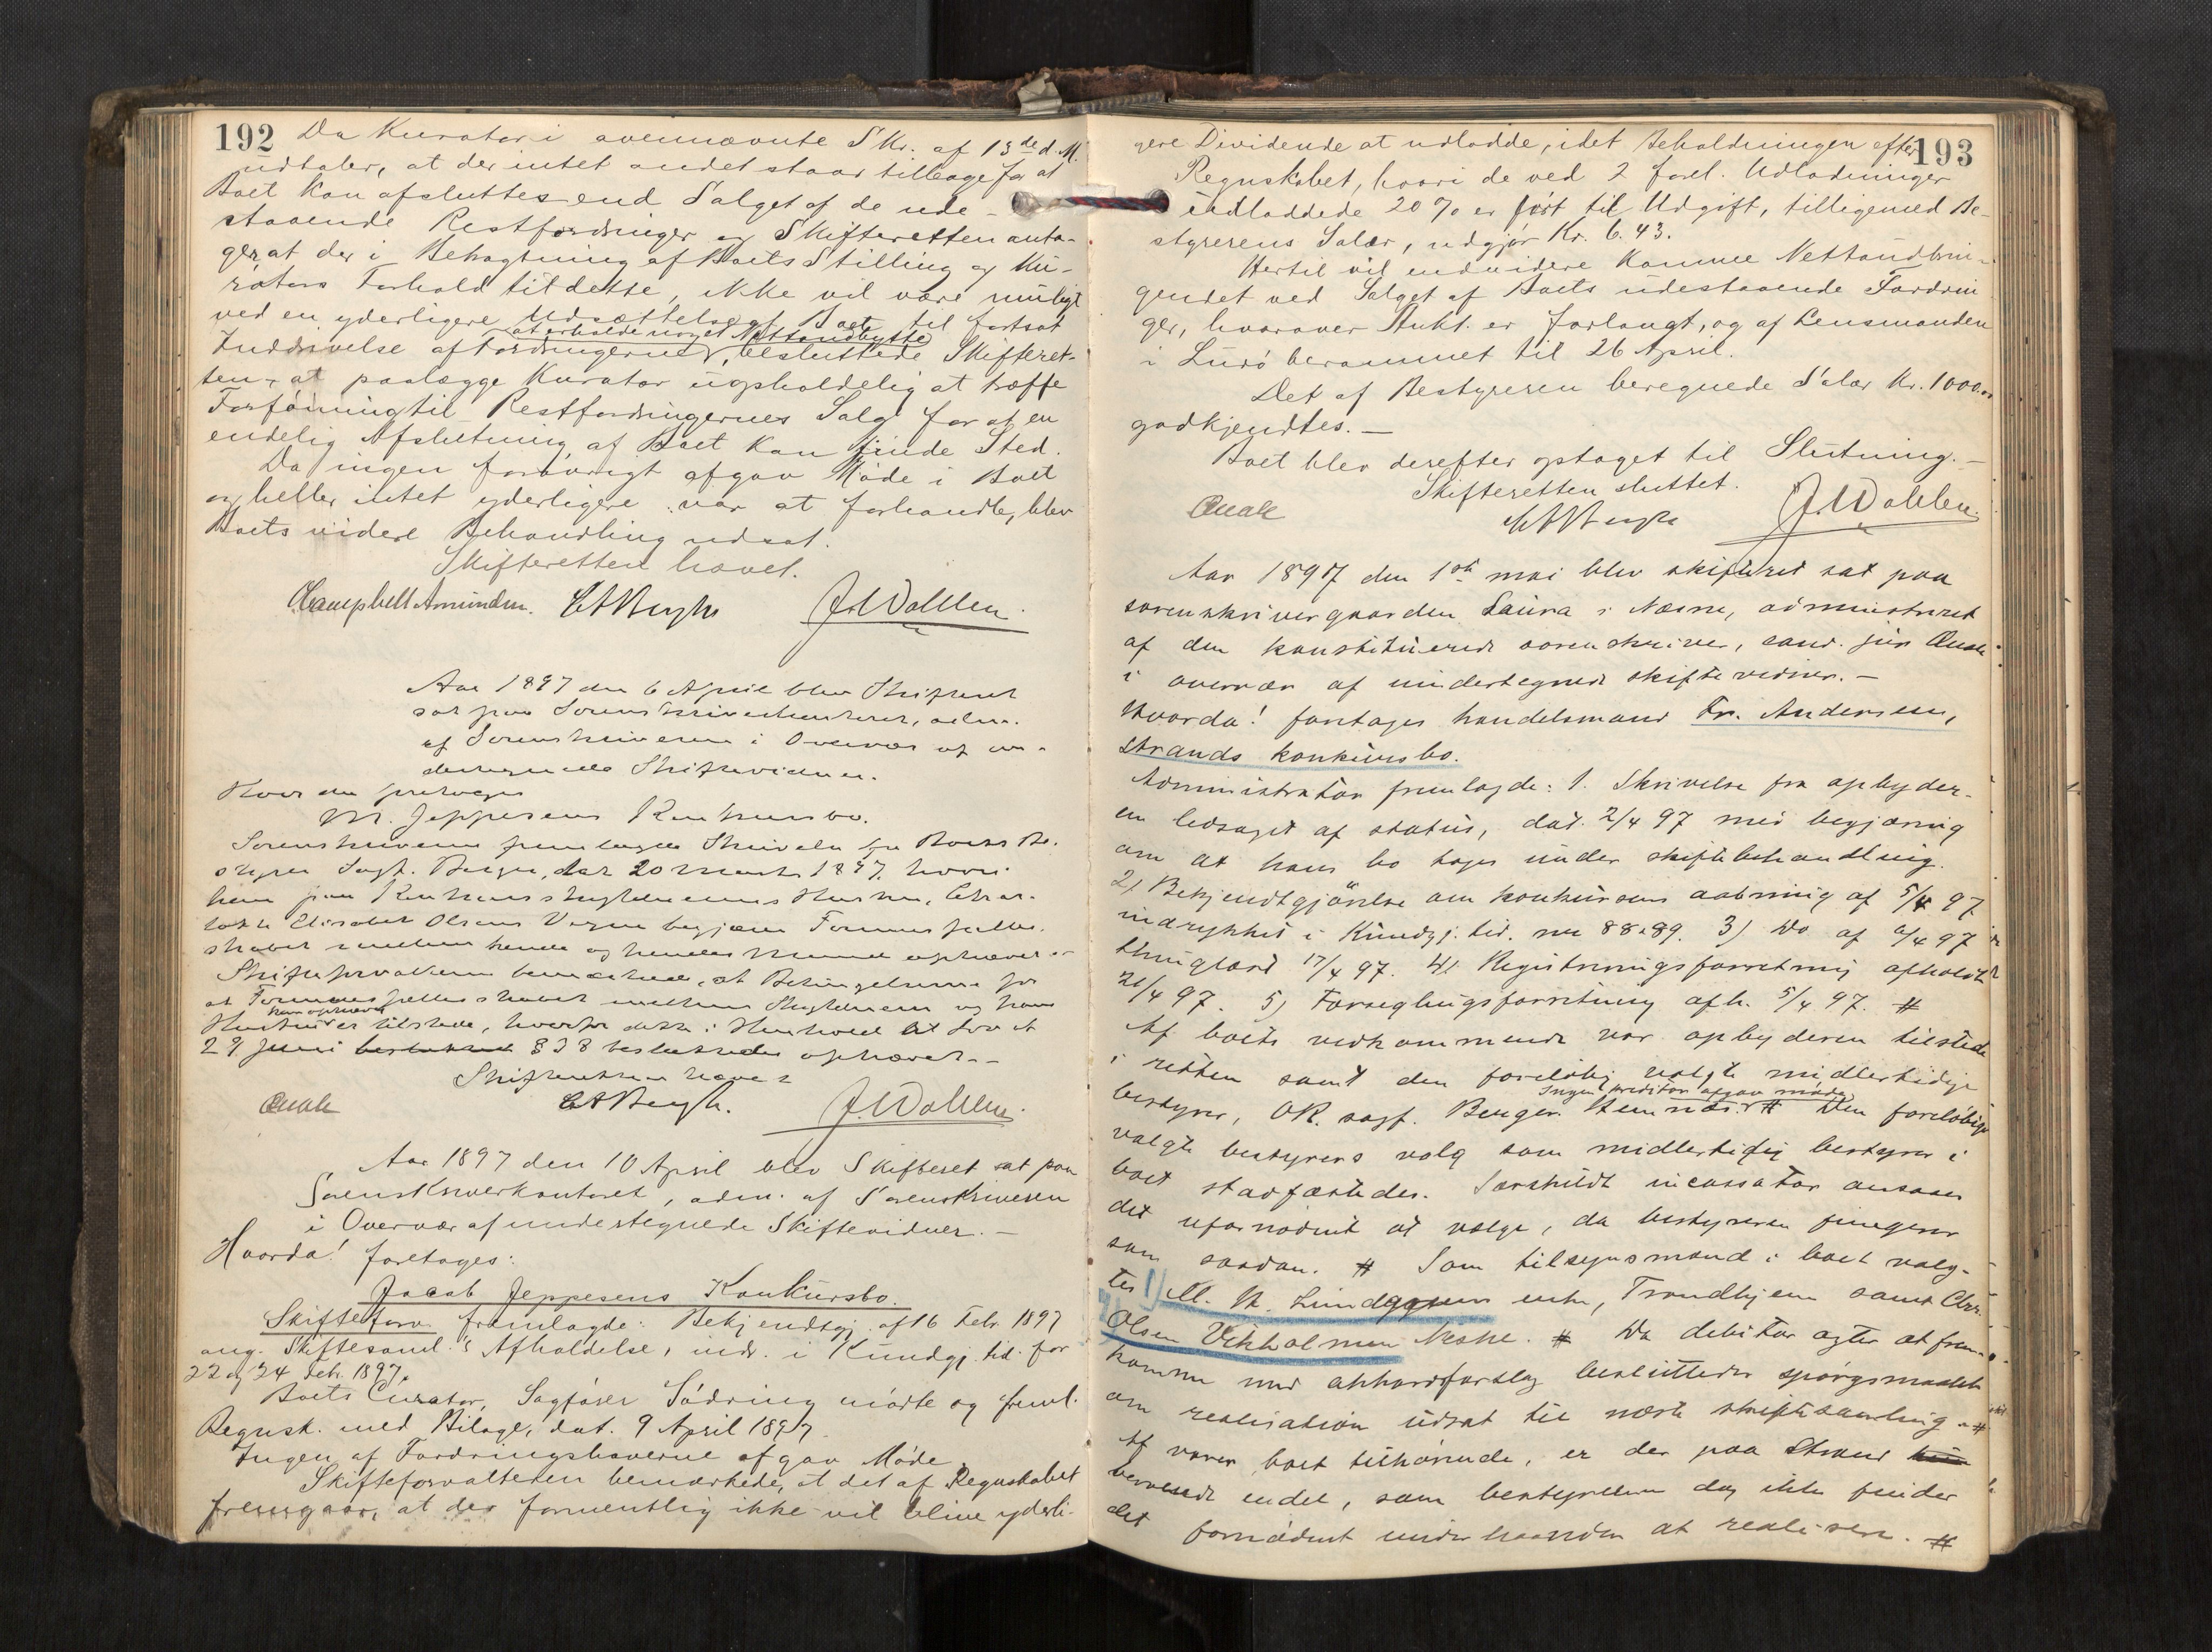 192
Da Kurator i ovennævnte Skr. af 13de d. M.
udtaler, at der intet andet staar tilbage for at
Boet kan afsluttes end Salget af de ude-
staaende Restfordringer og Skifteretten anta-
ger, at der i Betragtning af Boets Stilling og Ku-
rators Forhold til dette, ikke vil være muligt
ved en yderligere Udsættelse af Boet til fortsat
at erholde noget Nettoudbytte
Inddrivelse af Fordringerne, besluttede Skifteret-
ten, at paalægge Kurator uopholdelig at træffe
Forføining til Restfordringernes Salg for at en
endelig Afslutning af Boet kan finde Sted.
Da ingen forøvrigt afgav Møde i Boet
og heller intet yderligere var at forhandle, blev
Boets videre Behandling udsat.
Skifteretten hævet.
Campbell Amundsen. J. Wahlen.
Aar 1897 den 6 April blev Skifteret
sat paa Sorenskriverkontoret, adm.
af Sorenskriveren i Overvær af un-
dertegnede Skiftevidner.
Hvorda foretoges
M. Jeppesens Konkursbo.
Sorenskriveren fremlagde Skrivelse fra Boets Be-
styrer Sagf. Berger, dat 20 Marts 1897, hvori
han paa Konkursskyldnerens Hustru, Char-
lotte Elisabet Olsens Vegne begjærer Formuesfælles-
skabet imellem hende og hendes Mand ophævet.-
Skifteforvalteren bemærkede, at Betingelserne for
at Formuesfællesskabet mellem Skyldneren og hans
kan ophæves
Hustru er tilstede, hvorfor dette i Henhold til Lov af
29 Juni § 38 besluttedes ophævet.-
Skifteretten hævet
Quale J. Wahlen.
Aar 1897 den 10 April blev Skifteret sat paa
Sorenskriverkontoret, adm. af Sorenskriveren
i Overvær af undertegnede Skiftevidner.-
Hvorda! foretoges:
Jacob Jeppesens Konkursbo.
Skifteforv. fremlagde: Bekjendtgj. af 16 Febr. 1897
ang. Skiftesaml.'s Afholdelse, indr. i Kundgj. tid. for
22 og 24 Feb. 1897.
Boets Curator, Sagfører Sødring mødte og freml.
Regnsk. med Bilage, dat. 9 April 1897.
Ingen af Fordringshaverne afgav Møde.
Skifteforvalteren bemærkede, at det af Regnskabet
fremgaar, at der formentlig ikke vil blive yderli-
193
gere Dividende at udlodde, idet Beholdningen efter
Regnskabet, hvori de ved 2 forel. Udlodninger
udloddede 20 % er ført til Udgift, tilligemed Be-
styrerens Salær, udgjør Kr. 6.43.
Hertil vil endvidere komme Nettoudbrin-
gendet ved Salget af Boets udestaaende Fordrin-
ger, hvorover Aukt. er forlangt, og af Lensmanden
i Lurø berammet til 26 April.
Det af Bestyreren beregnede Salær Kr. 1000.00
godkjendtes.-
Boet blev derefter optaget til Slutning.-
Skifteretten sluttet.
Quale J. Wahlen.
Aar 1897 den 1ste mai blev skifteret sat paa
sorenskrivergaarden Laura i Næsne, administreret
af den konstituerede sorenskriver, cand. jur Quale
i overvær af undertegnede skiftevidner.-
Hvorda! foretages handelsmand Fr. Andersen,
Strands konkursbo.
Administrator fremlagde: 1. Skrivelse fra opbyder-
en ledsaget af status, dat. 2/4 97 med begjæring
om at hans bo tages under skiftebehandling.
2) Bekjendtgjørelse om konkursens aabning af 5/4 97
indrykket i Kundgj. tid. nr 88 & 89. 3) Do af 6/4 97
thinglæst 17/4 97. 4) Registreringsforretning afholdt
21/4 97. 5) Forseglingsforretning afh. 5/4 97. #
Af boets vedkommende var opbyderen tilstede
i retten samt den foreløbig valgte midlertidige
Ingen kreditor afgav møde
bestyrer, OR. sagf. Berger Hemnæs. # Den foreløbige
valgte bestyrers valg som midlertidig bestyrer i
boet stadfæstedes. Særskildt incassator ansaaes
det ufornødent at vælge, da bestyreren fungerer
som saadan. # Som tilsynsmænd i boet valg-
tes 1) M. H. Lundggren enke, Trondhjem samt Chr.
Olsen Vikholmen Næsne. # Da debitor agter at frem-
komme med akkordforslag besluttedes spørgsmaalet
om realisation udsat til næste skiftesamling. #
Af varer boet tilhørende, er der paa Strand
beroende endel, som bestyreren dog ikke finder
det fornødent underhaanden at realisere. #